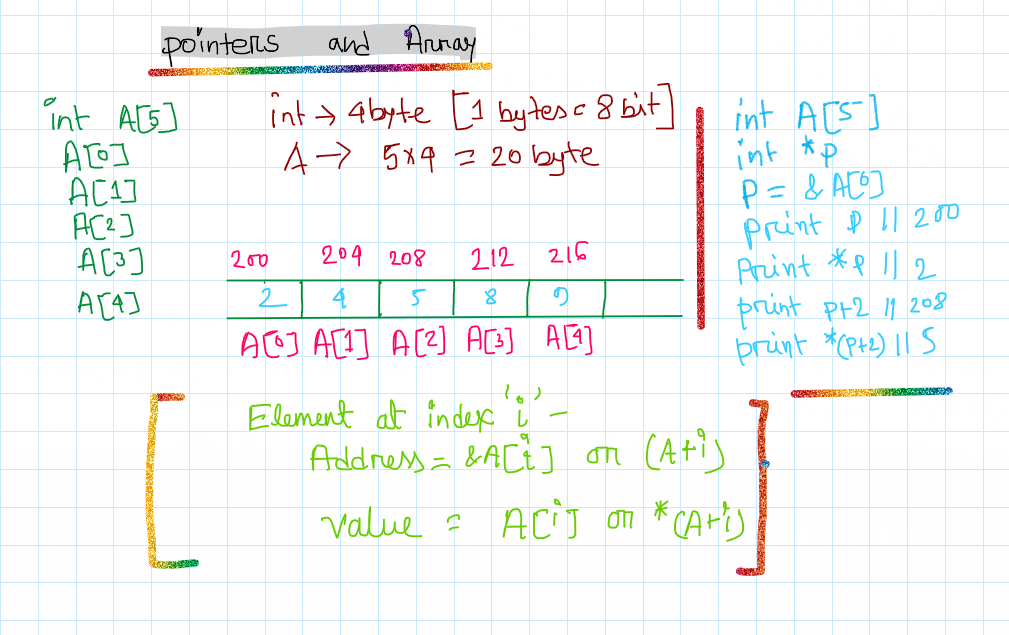 pointers and Array
int A[5]
A[0]
A[1]
A[2]
A[3]
A[4]
int → 4byte [1 bytes = 8 bit]
A → 5×4 = 20 byte
200 204 208 212 216
2 4 5 8 9
A[0] A[1] A[2] A[3] A[4]
int A[5]
int *p
P = &A[0]
print p || 200
Print *p || 2
print p+2 || 208
print *(p+2) || 5
Element at index 'i' -
Address = &A[i] or (A+i)
value = A[i] or *(A+i)